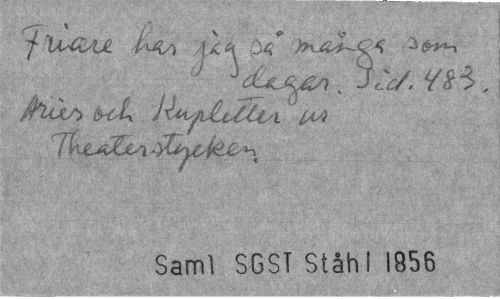 Friare har jag så många som
dagar. Sid. 483.
Aries och Kupletter ur
Theaterstycken.
Saml SGST Ståhl 1856